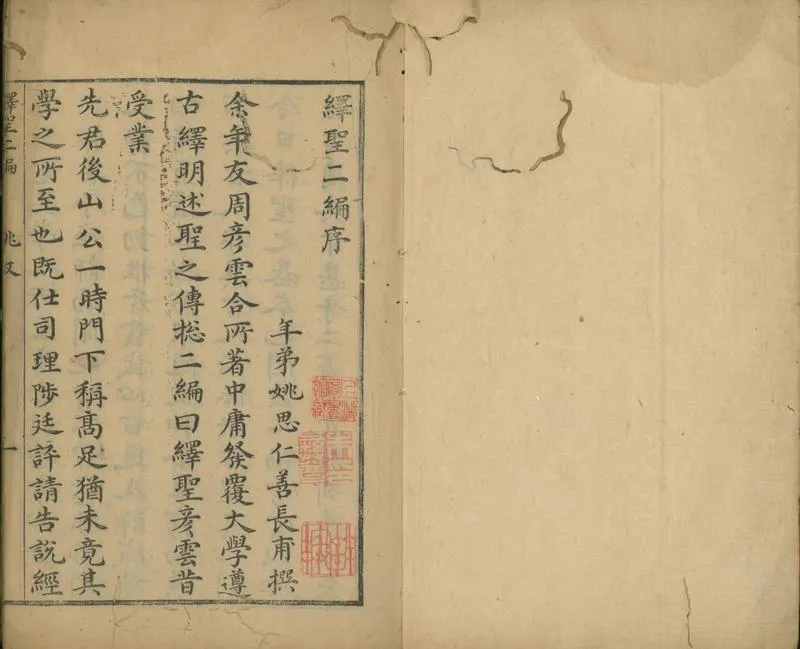 繹聖二編序
年弟姚思仁善長甫撰
余年友周彥雲合所著中庸發覆大學遵
古繹明述聖之傳捴二編曰繹聖彥雲昔
受業
先君後山公一時門下稱高足猶未竟其
學之所至也既仕司理陟廷評請告說經
繹聖二編
一